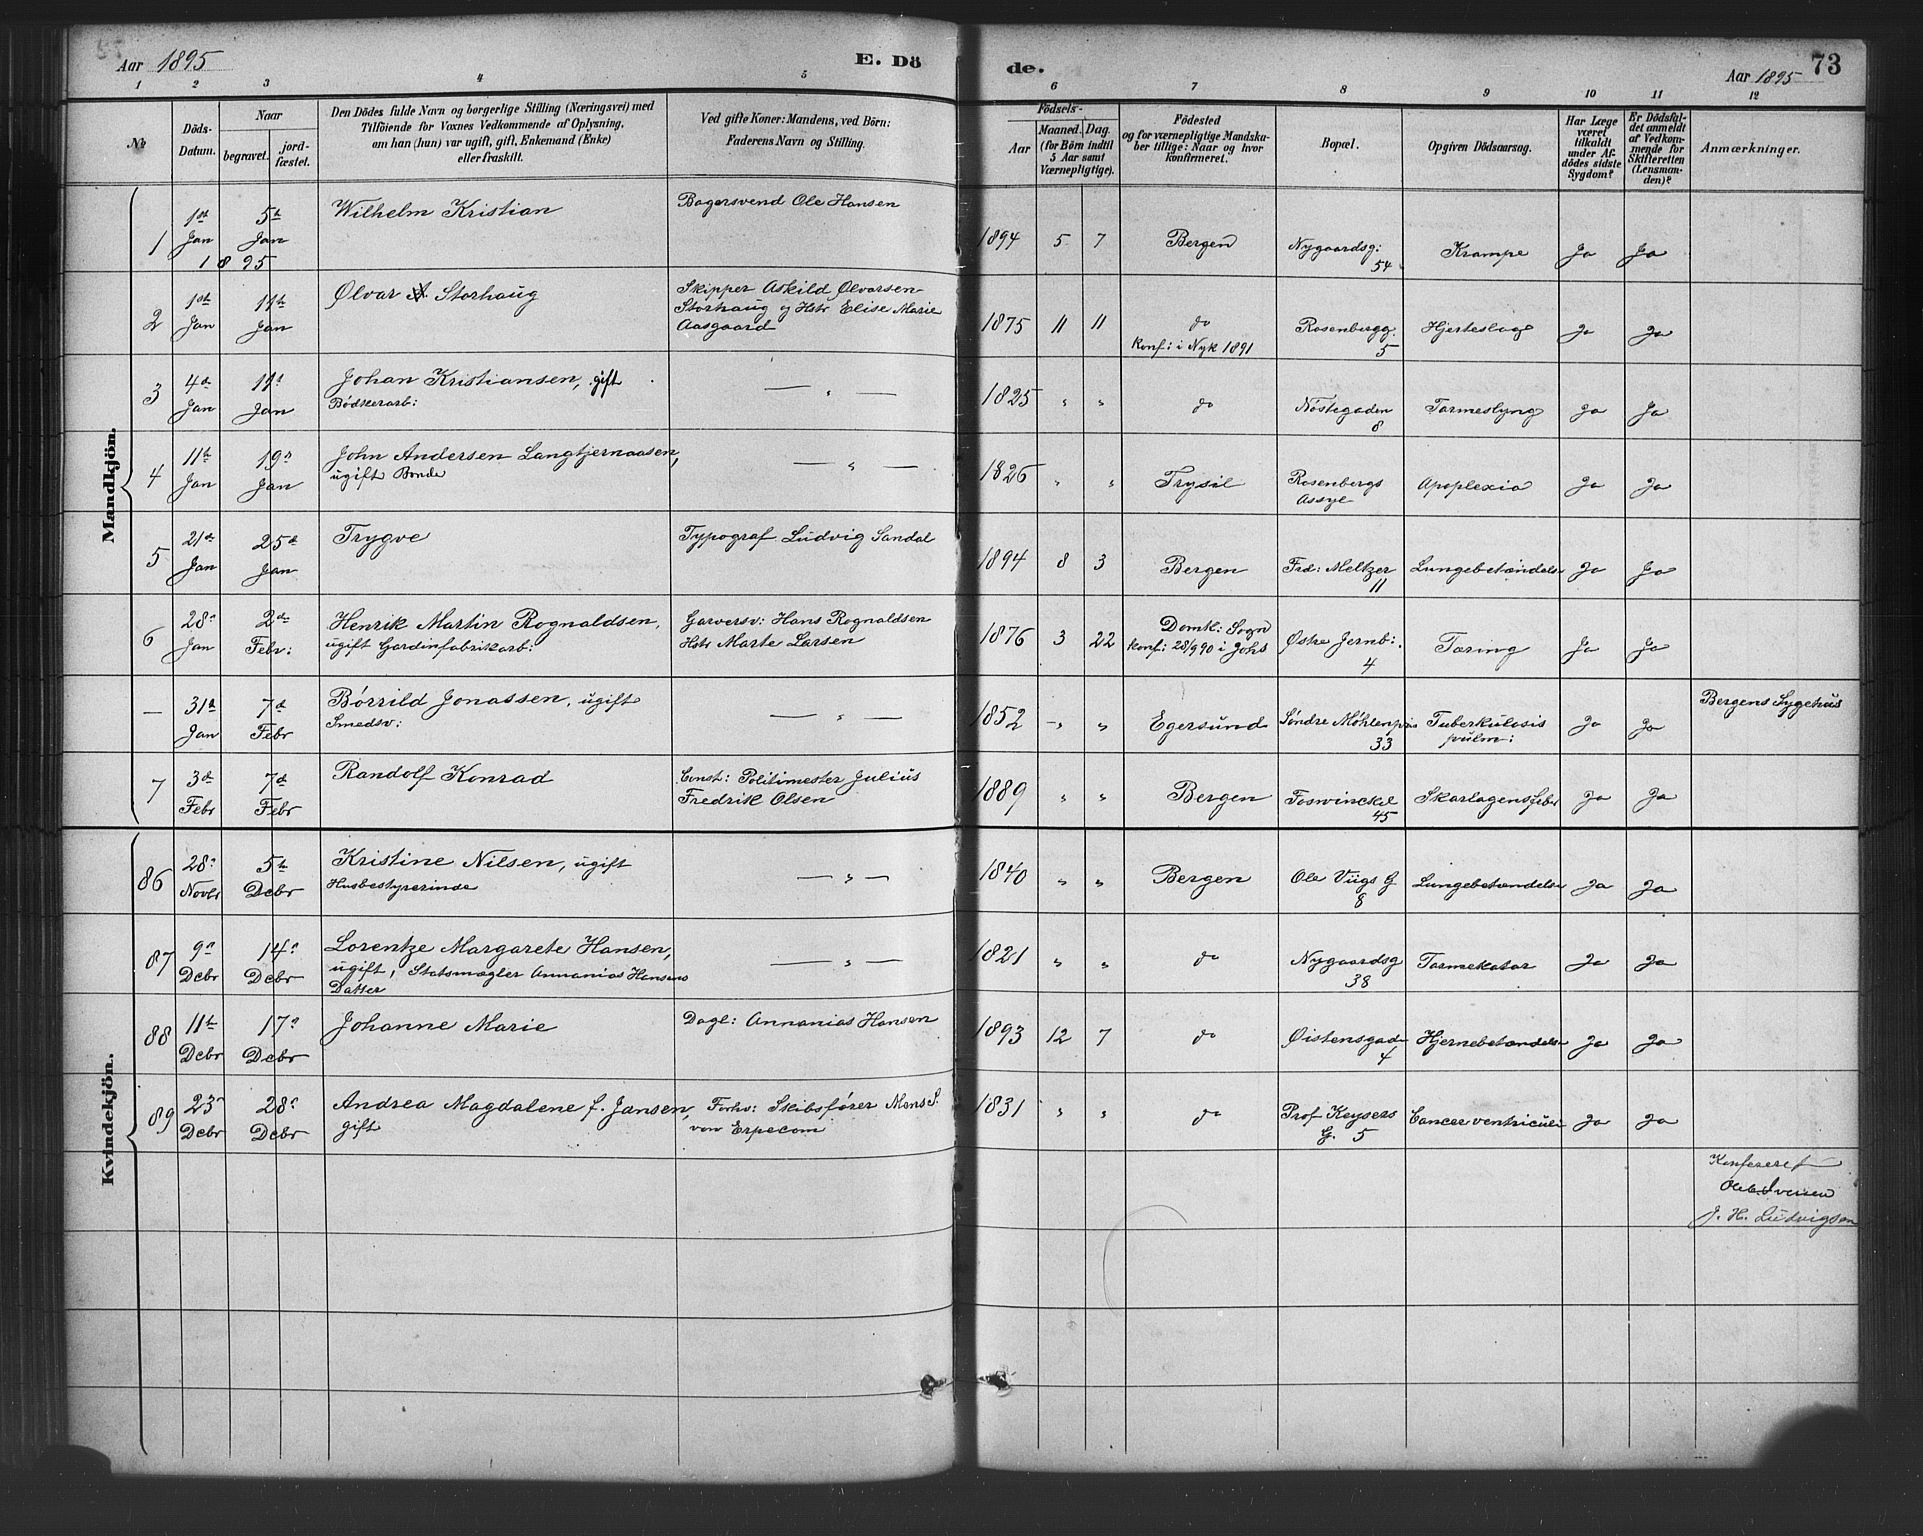 Aar 1895
E. Dö
de.
73
Aar 1895
1 2 3 4 5 6 7 8 9 10 11 12
No
Döds-
Datum.
Naar
begravet.
jord-
fæstet.
Den Dödes fulde Navn og borgerlige Stilling (Næringsvei) med
Tilföiende for Voxnes Vedkommende af Oplysning,
om han (hun) var ugift, gift, Enkemand (Enke)
eller fraskilt.
Ved gifte Koner: Mandens, ved Börn:
Faderens Navn og Stilling.
Födsels-
Aar
Maaned.
Dag.
(for Börn indtil
5 Aar samt
Værnepligtige).
Födested
og for værnepligtige Mandska-
ber tillige: Naar og hvor
konfirmeret.
Bopæl.
Opgiven Dödsaarsag.
Har Læge
været
tilkaldt
under Af-
dödes sidste
Sygdom?
Er Dödsfal-
det anmeldt
af Vedkom-
mende for
Skifteretten
(Lensman-
den)?
Anmærkninger.
Mandkjön.
1 1ste Jan 1895 5te Jan Wilhelm Kristian Bagersvend Ole Hansen 1894 5 7 Bergen Nygaardsg: 54 Krampe Ja Ja
2 1ste Jan 11te Jan Ølvar A Storhaug Skipper Askild Ølvarsen
Storhaug og Hstr Elise Marie
Aasgaard 1875 11 11 do
konf: i Nyk 1891 Rosenbergg. 5 Hjerteslag Ja Ja
3 4de Jan 11te Jan Johan Kristiansen, gift
Bødkerarb: — " — 1825 " " do Nöstegaden 8 Tarmeslyng Ja Ja
4 11te Jan 19de Jan John Andersen Langtjernaasen,
ugift Bonde — " — 1826 " " Trysil Rosenbergs
Assyl Apoplexia Ja Ja
5 21de Jan 25de Jan Trygve Typograf Ludvig Sandal 1894 8 3 Bergen Frd: Meltzer 11 Lungebetændelse Ja Ja
6 28de Jan 2den Febr: Henrik Martin Rognaldsen,
ugift Gardinfabrikarb: Garversv: Hans Rognaldsen
Hstr Marte Larsen 1876 3 22 Domk: Sogn
konf: 28/9 90 i Johs Østre Jernb: 4 Tæring Ja Ja
— 31de Jan 7de Febr Børrild Jonassen, ugift
Smedsv: — " — 1852 " " Egersund Søndre Møhlenpris 33 Tuberkulosis
pulm: Ja Ja Bergens Sygehus
7 3de Febr 7de Febr Randolf Konrad Const: Politimester Julius
Fredrik Olsen 1889 " " Bergen Foswinckel 45 Skarlagensfeber Ja Ja
Kvindekjön.
86 28de Novbr 5te Dcbr Kristine Nilsen, ugift
Husbestyrerinde — " — 1840 " " Bergen Ole Viigs G 8 Lungebetændelse Ja Ja
87 9de Dcbr 14de Dcbr Lorentze Margarete Hansen,
ugift, Statsmægler Annanias Hansens
Datter — " — 1821 " " do Nygaardsg 38 Tarmekatar Ja Ja
88 11te Dcbr 17de Dcbr Johanne Marie Dagl: Annanias Hansen 1893 12 7 do Øistensgade 4 Hjernebetændelse Ja Ja
89 23de Dcbr 28de Dcbr Andrea Magdalene f. Jansen,
gift Forhv: Skibsfører Mons S.
von Erpecom 1831 " " do Prof Keysers
G. 5 Cancer ventriculi Ja Ja
Konfereret
J. H. Ludvigsen